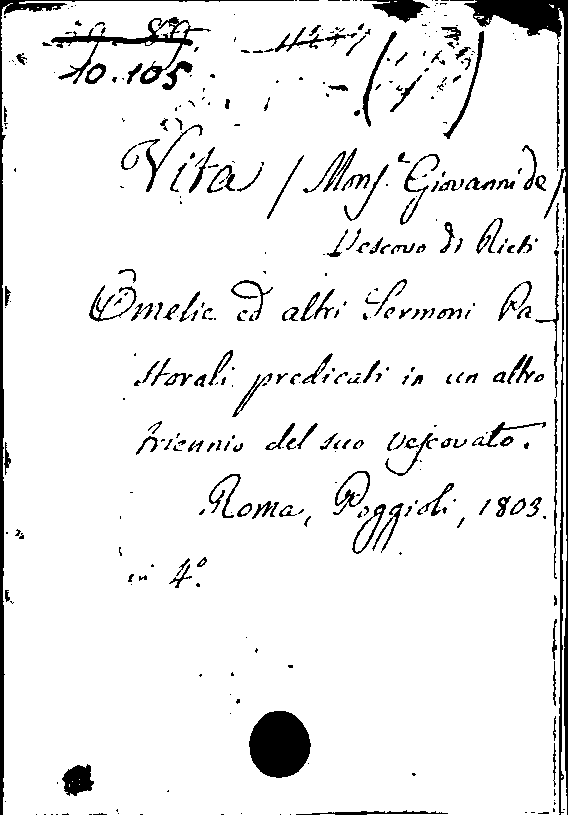 10.105
Vita / Monsʳ. Giovanni de /
Vescovo di Rieti
Omelie ed altri Sermoni Pa-
storali predicati in un altro
triennio del suo vescovato.
Roma, Poggioli, 1803.
in 4º.